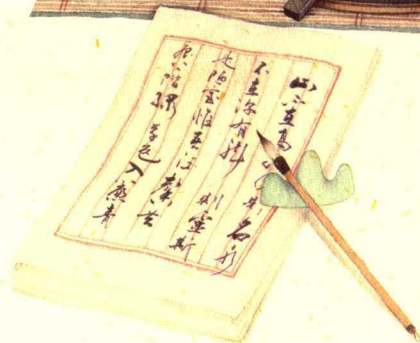 山不在高名水
不在深有龍則靈斯
是陋室惟吾德馨苔
痕上階綠草色入簾青